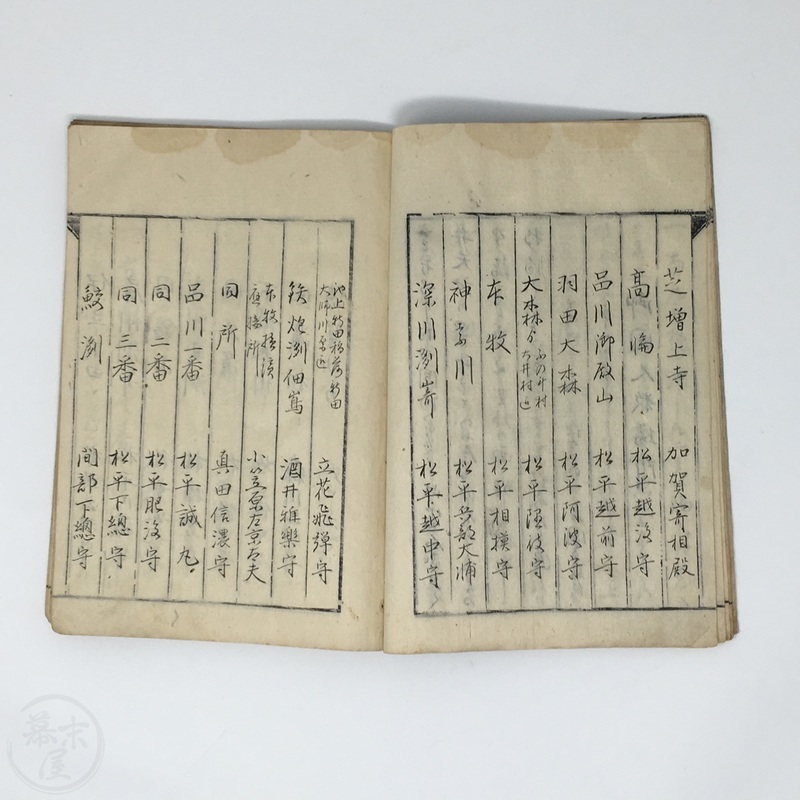 芝増上寺 加賀宰相殿
高輪 松平越後守
品川御殿山 松平越前守
羽田大森 松平阿波守
大森ゟ 不入斗村 大井村迄 松平隠岐守
本牧 松平相摸守
神奈川 松平兵部大浦
深川洲嵜 松平越中守
池上新田稲荷新田 大師川原迄 立花飛弾守
鉄炮洲佃嶌 酒井雅樂守
本牧横濱 應接所 小笠原左京大夫
同所 真田信濃守
品川一番 松平誠丸
同二番 松平肥後守
同三番 松平下總守
鮫洲 間部下總守
幕末屋